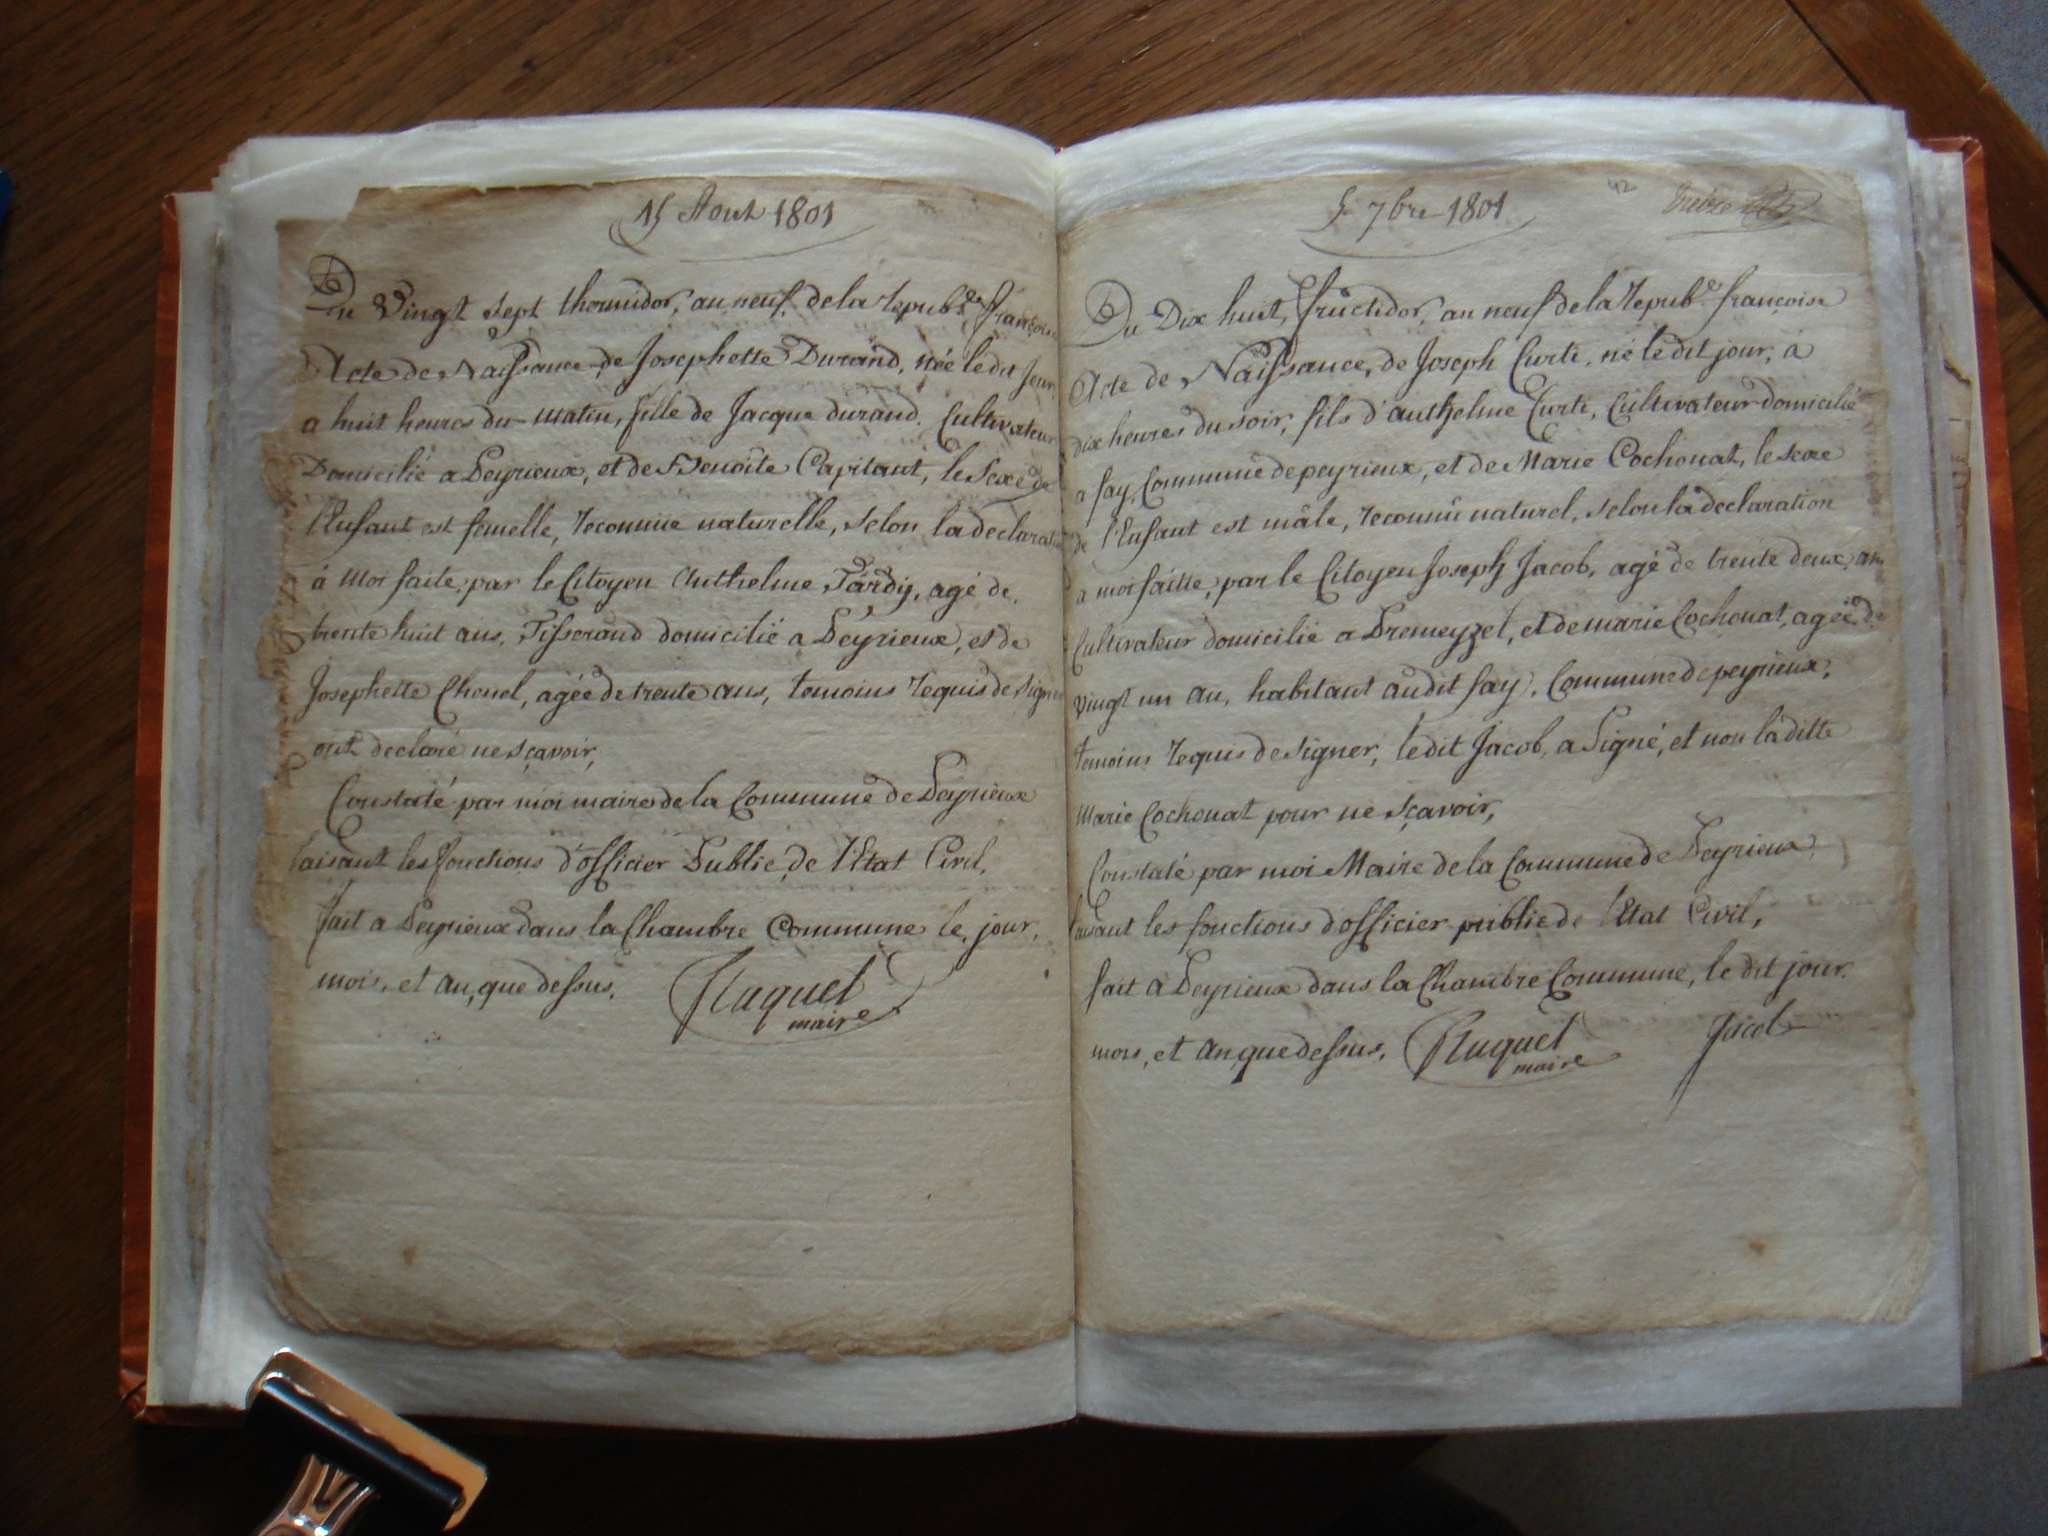 15 Aout 1801
Du Vingt sept thermidor, an neuf, de la republ.e françoise
Acte de Naissance de Josephette Durand, née le dit jour
a huit heures du matin, fille de Jacque durand, Cultivateur
Domicilié a Peyrieux, et de Benoîte Capitant, le Sexe de
l'Enfant est femelle, reconnue naturelle, selon la declaration
à moi faite par le Citoyen Anthelme Tardy, agé de
trente huit ans, Tisserand domicilié a Peyrieux, et de
Josephette Chonel, agée de trente ans, temoins requis de signer
ont declaré ne sçavoir,
Constaté par moi maire de la Commune de Peyrieux
faisant les fonctions d'officier Public de l'Etat Civil,
fait a Peyrieux dans la Chambre Commune le jour,
mois, et an, que dessus. Fluquet
maire
5 7bre 1801
42
Du Dix huit, fructidor, an neuf de la republ.e françoise
Acte de Naissance, de Joseph Curti, né le dit jour, à
dix heures du soir, fils d'anthelme Curti, Cultivateur domicilié
a fay, Commune de peyrieux, et de Marie Cochonat, le sexe
de l'Enfant est mâle, reconnu naturel, selon la declaration
a moi faitte, par le Citoyen Joseph Jacob, agé de trente deux an,
Cultivateur domicilié a Premeyzel, et de marie Cochonat, agée de
vingt un an, habitant audit fay, Commune de peyrieux,
temoins requis de signer, le dit Jacob, a signé, et non la ditte
Marie Cochonat pour ne sçavoir,
Constaté par moi Maire de la Commune de Peyrieux
faisant les fonctions d'officier public de l'Etat Civil,
fait a Peyrieux dans la Chambre Commune, le dit jour
mois, et an, que dessus. Fluquet Jacob
maire